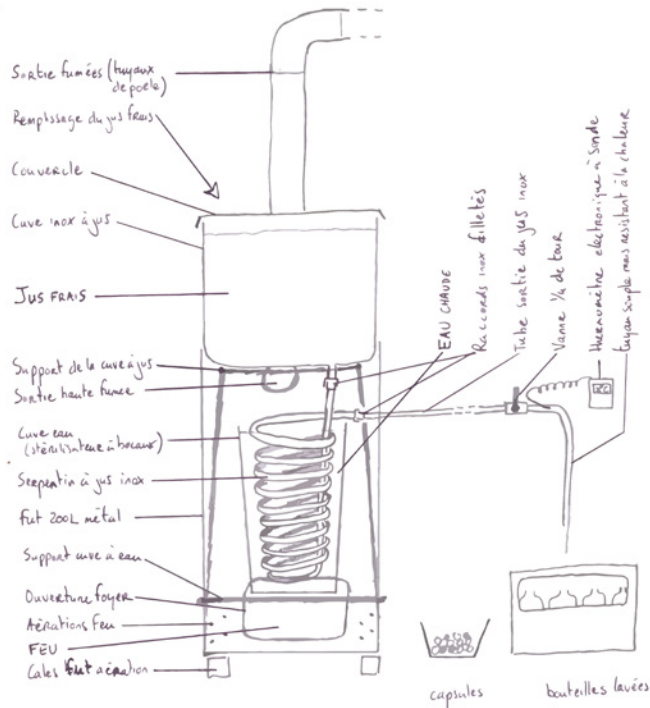 Sortie fumées (tuyaux
de poele)
Remplissage du jus frais
Couvercle
Cuve inox à jus
JUS FRAIS
Support de la cuve à jus
Sortie haute fumée
Cuve eau
(stérilisateur à bocaux)
Serpentin à jus inox
Fut 200L métal
Support cuve à eau
Ouverture foyer
Aérations feu
FEU
Cales fut aération
EAU CHAUDE
Raccords inox filletés
Tube sortie du jus inox
Vanne 1/4 de tour
thermomètre electronique à sonde
tuyau souple mais resistant à la chaleur
capsules
bouteilles lavées